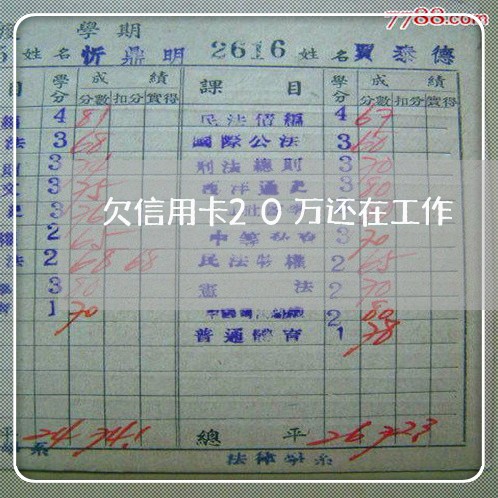 7788.com
學期
姓名 忻鼎明 2616 姓名 賈泰德
目 學分 成績 課目 學分 成績
分數 扣分 實得 分數 扣分 實得
4 81 民法債編 4 67
法 3 68 國際公法 3 60
3 刑法總則 3 70
3 75 西洋通史 3 80
3
欠信用卡20万还在工作
2 65 3 70
法 2 68 68 民法物權 2 65
3 80 憲法 2 70
1 70 2 80
普通體育 1 78
平 24 74.1 總平 26 72.3
系 法律學系